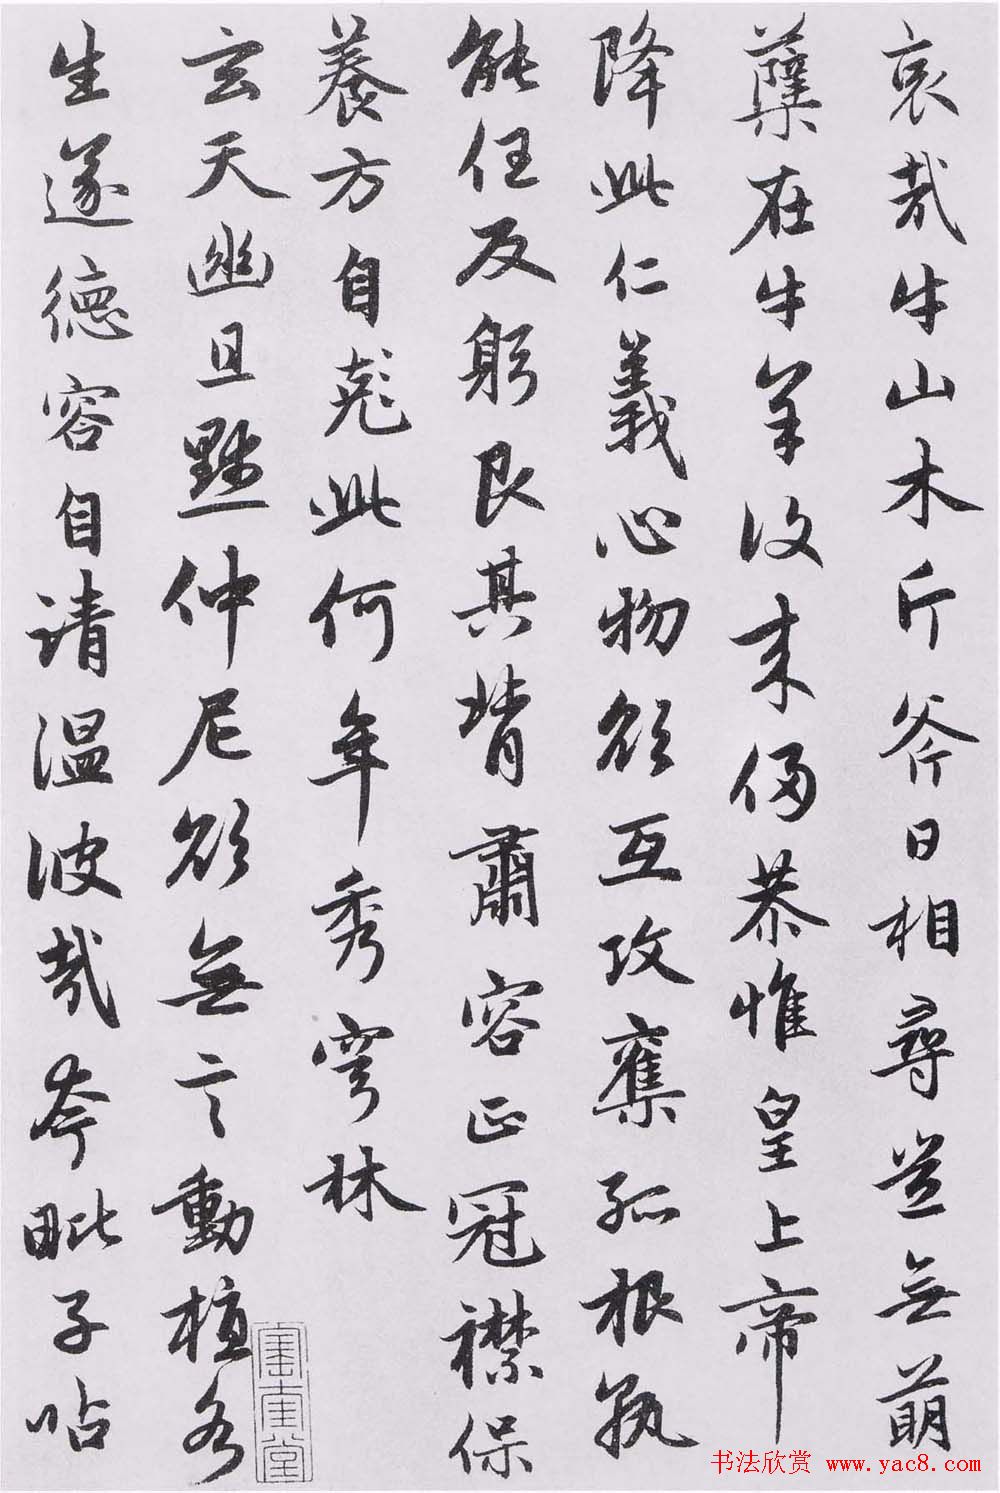 哀哉牛山木斤斧日相尋豈無萌
蘖在牛羊復來侵恭惟皇上帝
降此仁義心物欲互攻奪孤根孰
能任反躬艮其背肅容正冠襟保
養方自兹此何年秀穹林
玄天幽且默仲尼欲無言動植各
生遂德容自清温彼哉夸毗子呫
書法欣賞 www.yac8.com